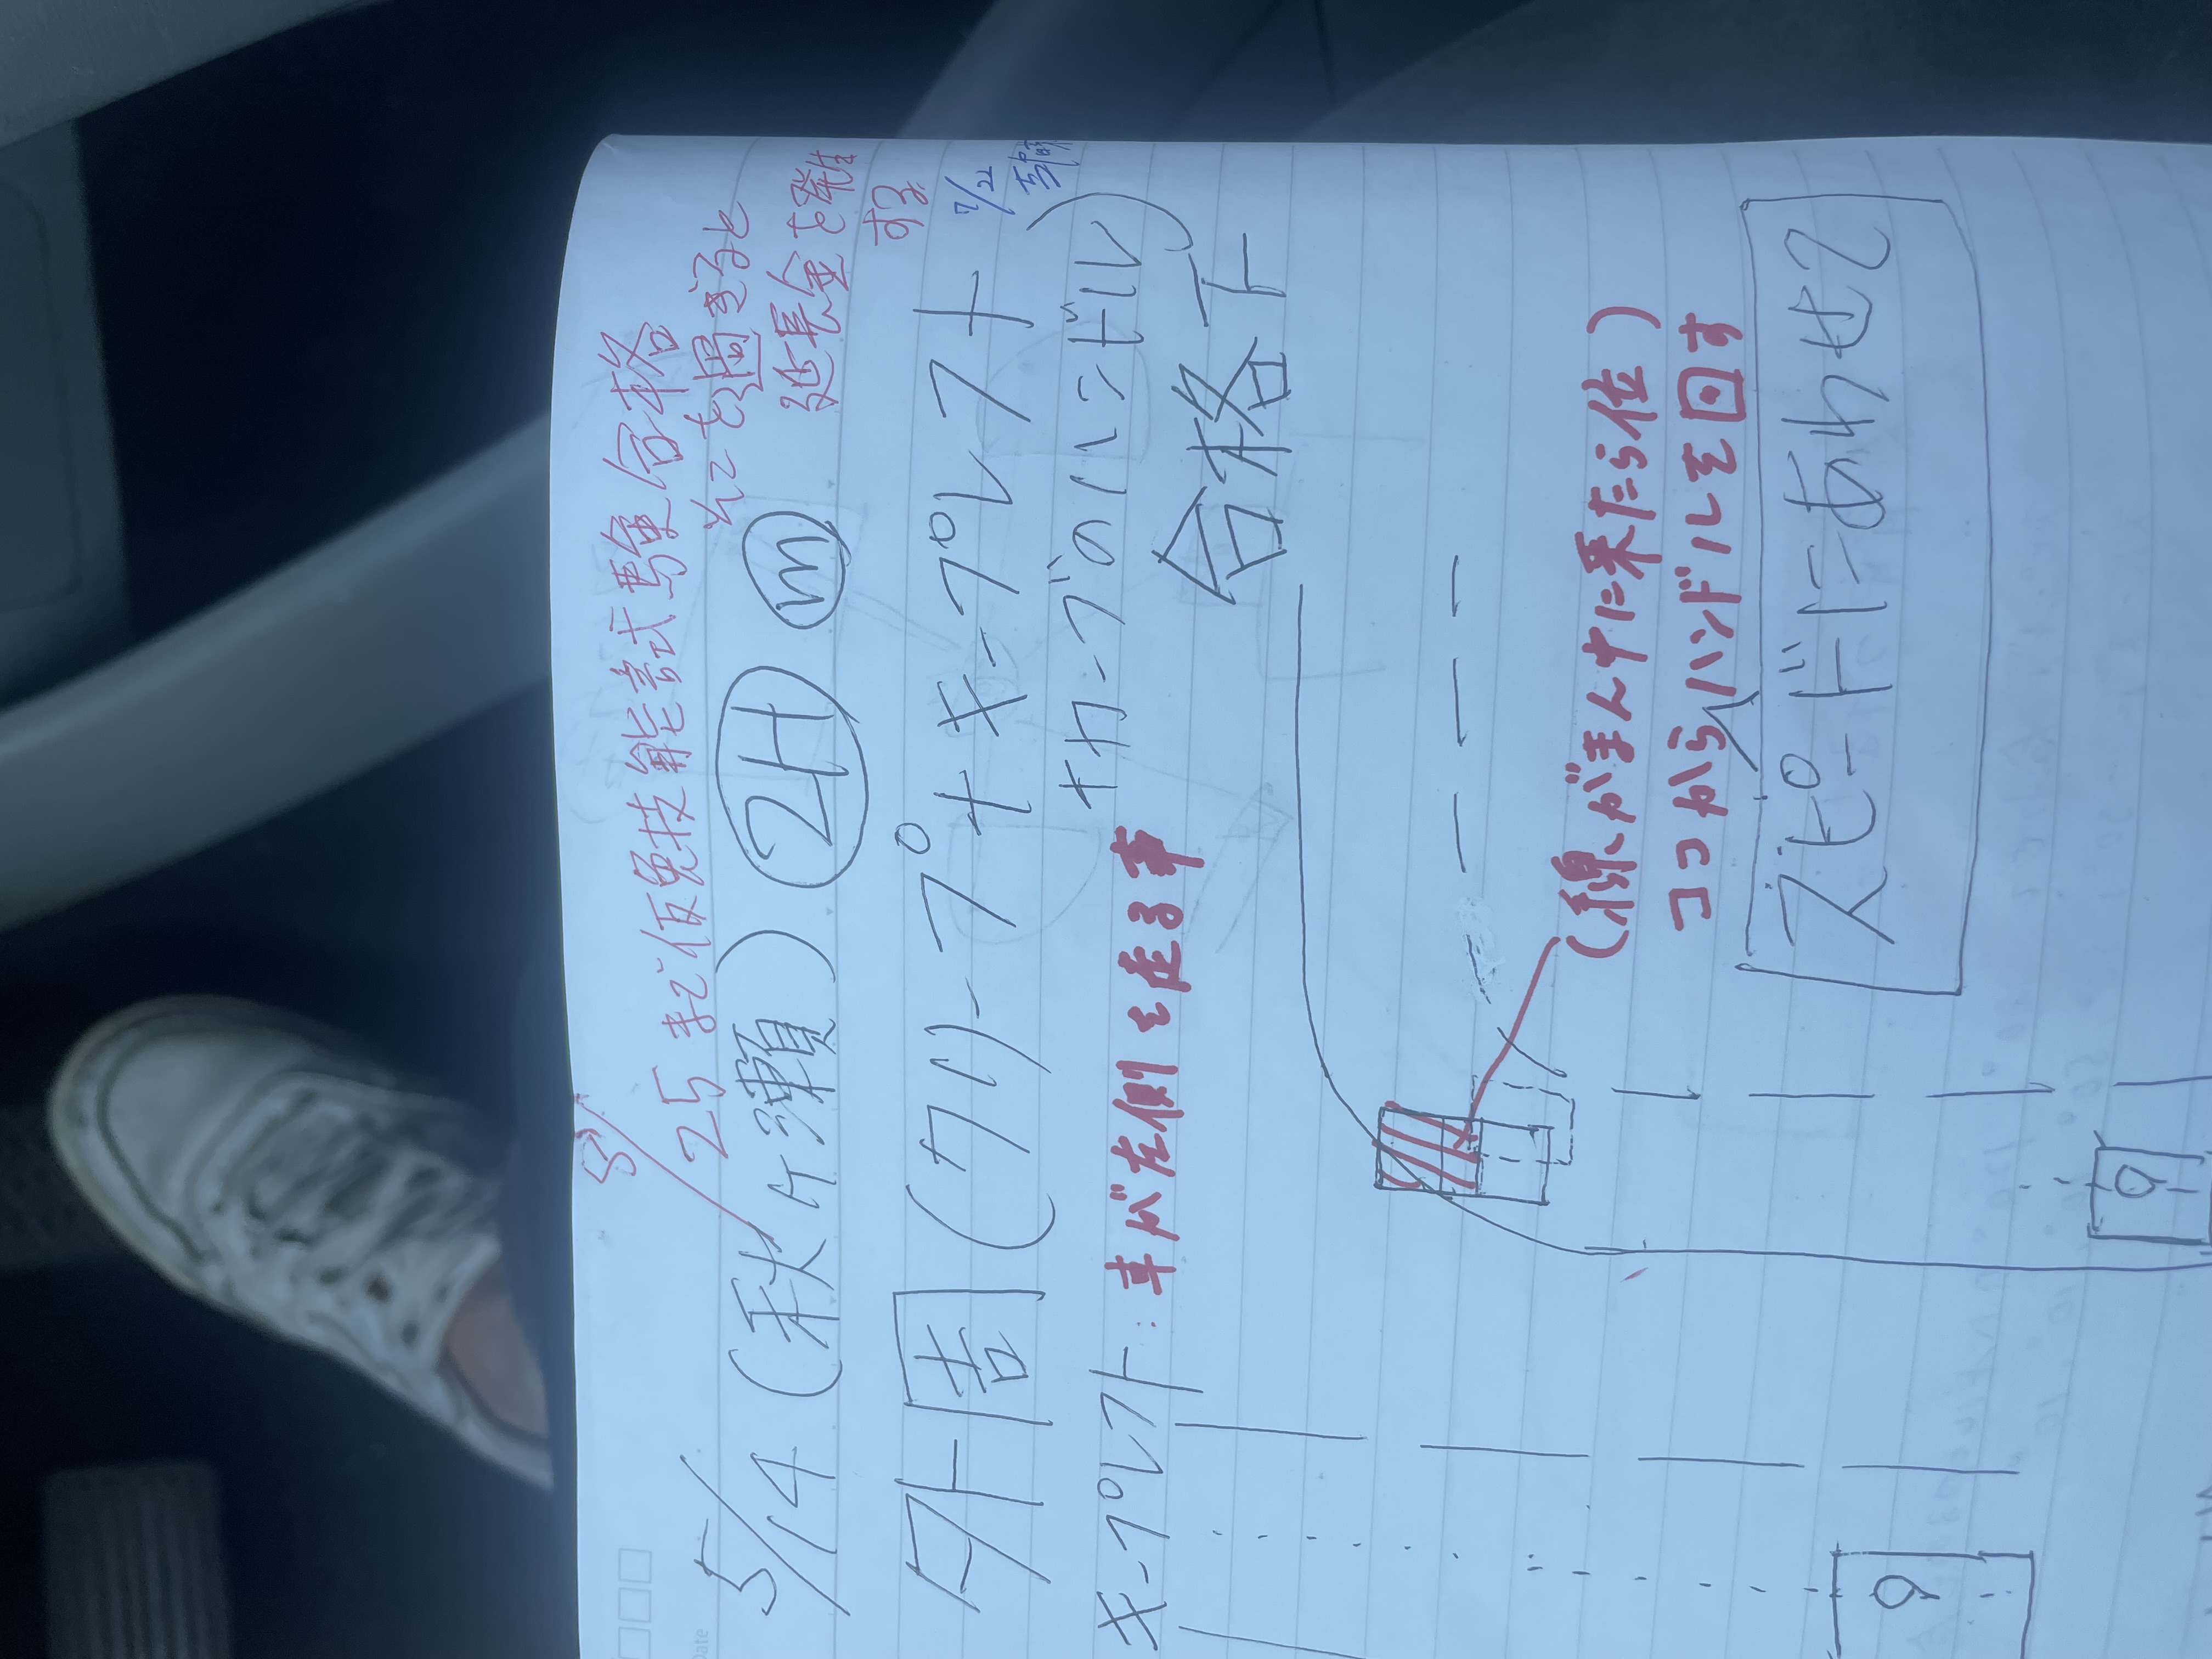 5/25まで仮免技能試験合格
それを過ぎると
延長金を発生
する
5/14 (秋ヶ瀬) 2H m
外吉 (クリープ + キープレフト
7/22
+カーブのハンドル)
合格ト
キープレフト : 車が左側を在る事
(線がまんナカに来たら位)
ココからハンドルを回す
スピードにあわせる
Date